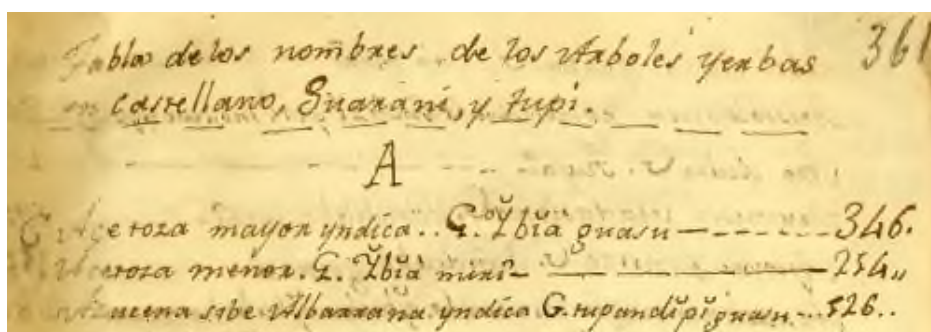 Tabla de los nombres de los Arboles yerbas 361
en castellano, Guarani, y tupi.
A
Azeroza mayor yndica.. G. Ỹbĭa guasu 346.
Azeroza menor. G. Ỹbĭa mini 254
Azucena sibe Albarrana yndica G. rupandĭpĭ guasu 526..